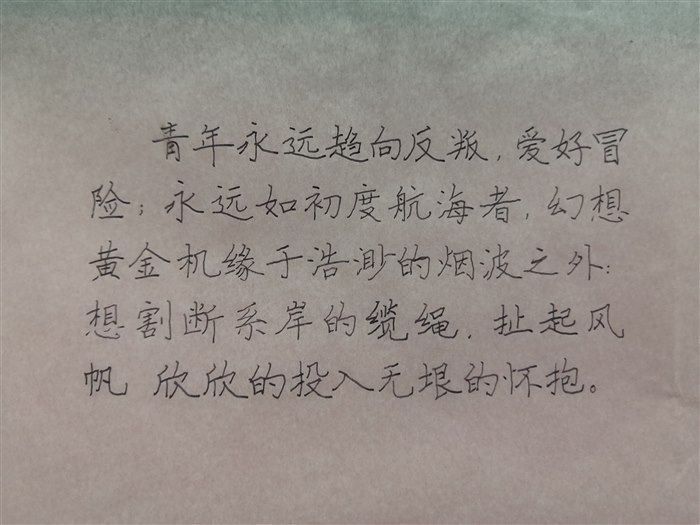 青年永远趋向反叛,爱好冒
险;永远如初度航海者,幻想
黄金机缘于浩渺的烟波之外:
想割断系岸的缆绳,扯起风
帆 欣欣的投入无垠的怀抱。